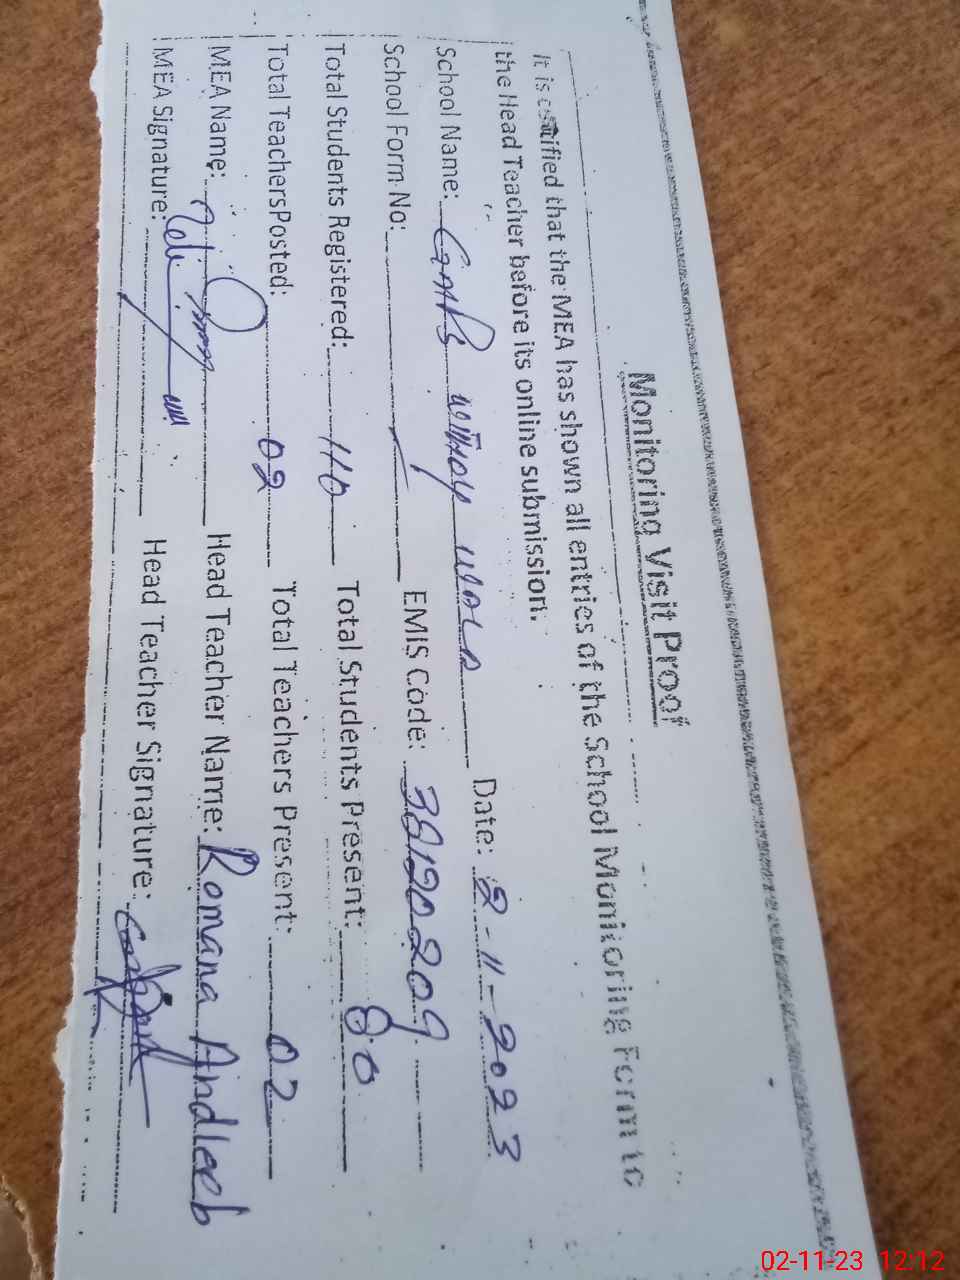 Monitoring Visit Proof
It is certified that the MEA has shown all entries of the School Monitoring Form to
the Head Teacher before its online submission.
School Name: GMPS Date: 2-11-2023
School Form No: EMIS Code: 38120209
Total Students Registered: 110 Total Students Present: 80
Total TeachersPosted: 02 Total Teachers Present: 02
MEA Name: Head Teacher Name: Romana Andleeb
MEA Signature: Head Teacher Signature:
02-11-23 12:12